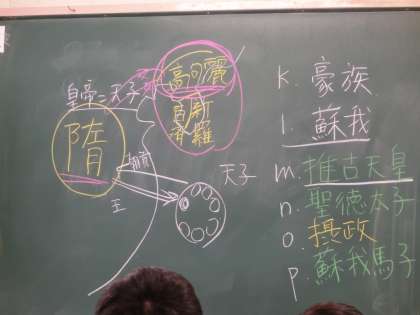 皇帝=天子
隋
高句麗
百済
新羅
朝貢
王
天子
k. 豪族
l. 蘇我
m. 推古天皇
n. 聖徳太子
o. 摂政
p. 蘇我馬子